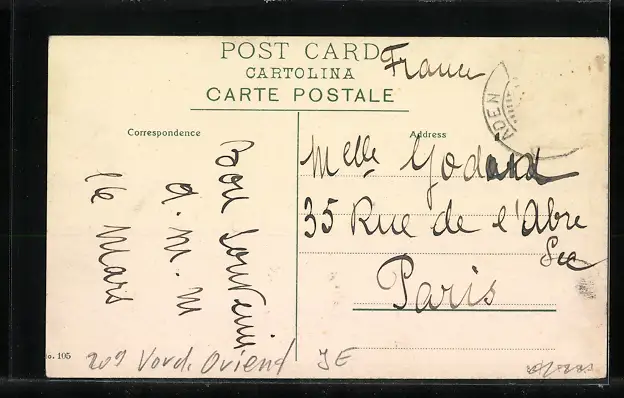 POST CARD
CARTOLINA
CARTE POSTALE
France
ADEN
Correspondence
Address
Bon Souvenir
a. M. M
16 Mars
Melle Godard
35 Rue de l'Abre
Sec
Paris
No. 105
209 Vord. Orient
JE